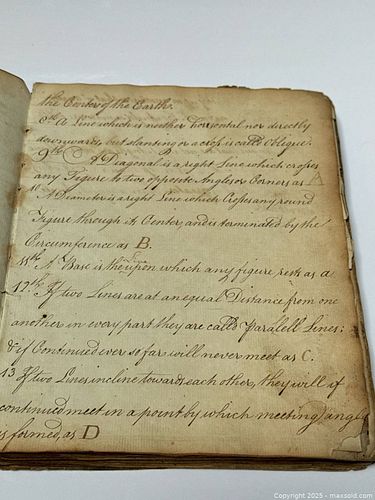 the Center of the Earth.
8th A Line which is neither horizontal nor directly
downwards but slanting or across is called Oblique.
9th A Diagonal is a right Line which crosses
any Figure to two opposite Angles or Corners as A
10 A Diameter is a right Line which Crosses any round
Figure through its Center, and is terminated by the
Circumference as B.
11th A Base is the upon which any figure rests as a
12th If two Lines are at an equal Distance from one
another in every part they are called Paralell Lines;
& if Continued ever so far will never meet as C.
13 If two Lines incline towards each other, they will if
continued meet in a point by which meeting angle
is formed, as D
Copyright 2025 - maxsold.com